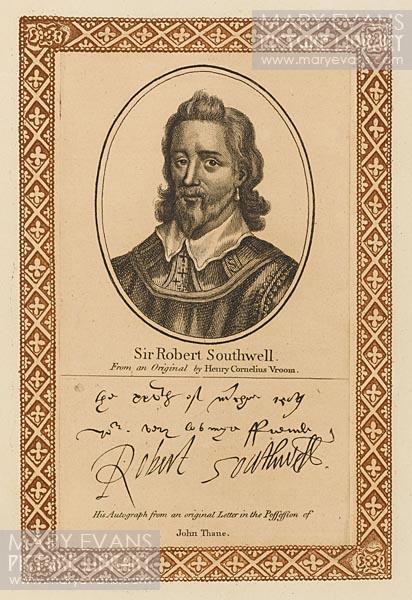 MARY EVANS
PICTURE LIBRARY
www.maryevans.com
Sir Robert Southwell.
From an Original by Henry Cornelius Vroom.
the of
yor. very ffrende
Robert Southwell
His Autograph from an original Letter in the Possession of
John Thane.
MARY EVANS
PICTURE LIBRARY
www.maryevans.com